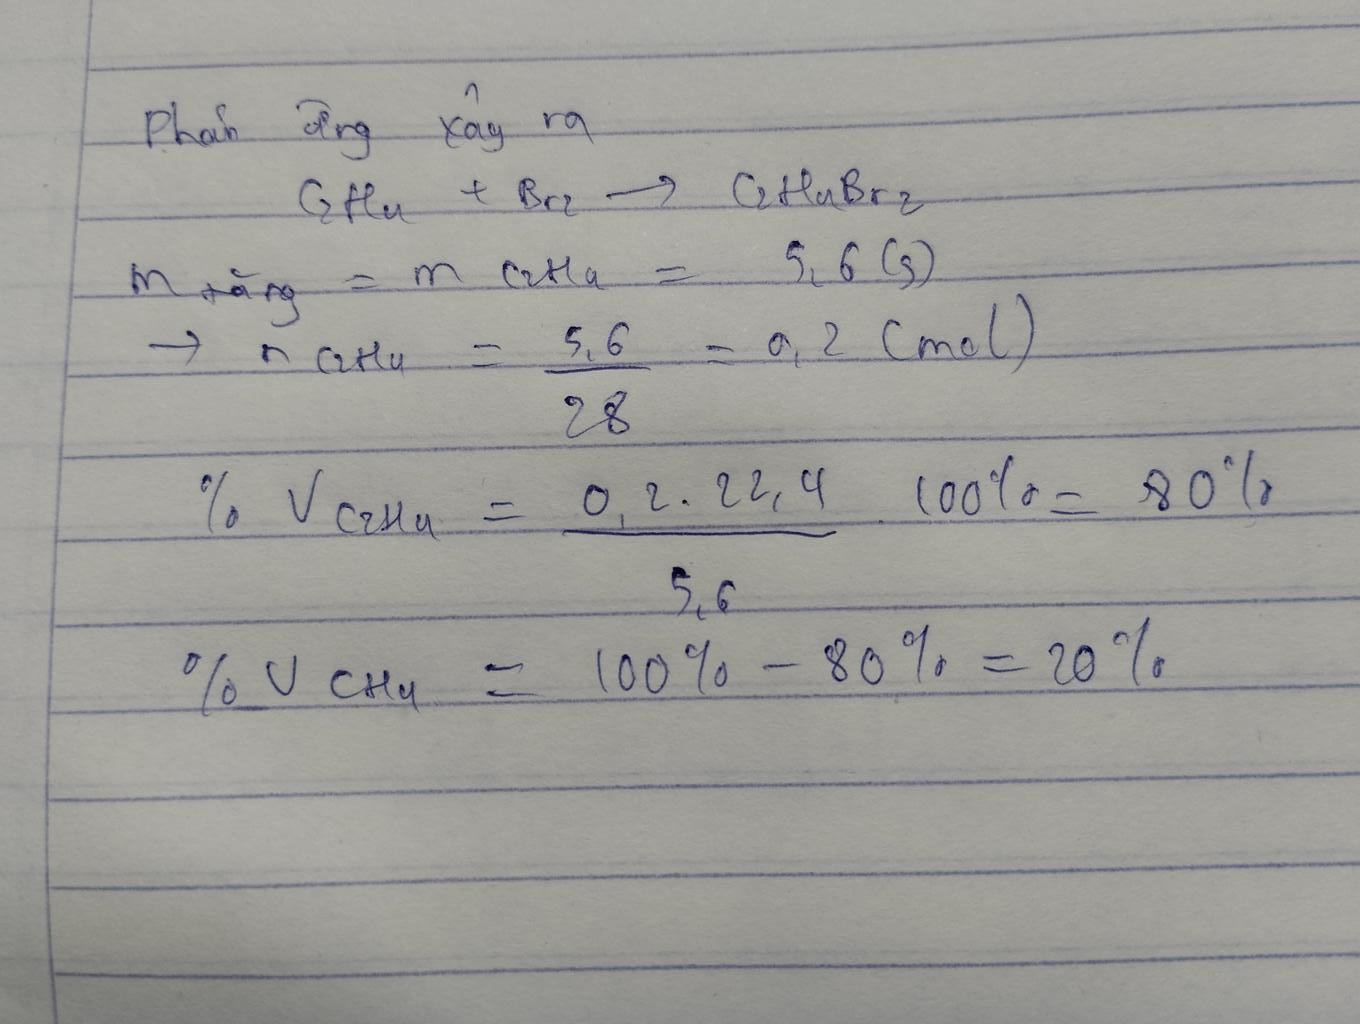 Phản ứng xảy ra
C2H4 + Br2 → C2H4Br2
m tăng = m C2H4 = 5,6 (g)
→ n C2H4 = 5,6/28 = 0,2 (mol)
% V C2H4 = 0,2.22,4/5,6 . 100% = 80%
% V CH4 = 100% - 80% = 20%